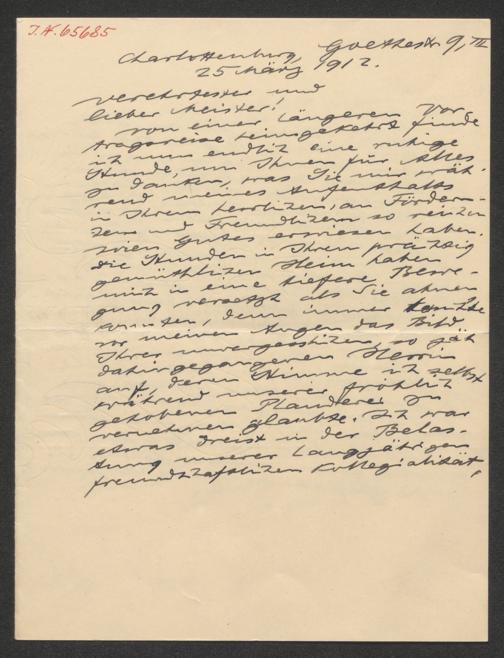 I.N. 65685
Charlottenburg, Goethestr 9, III
25 März 1912.
Verehrtester und
lieber Meister!
Von einer längeren Vor-
tragsreise heimgekehrt finde
ich nun endlich eine ruhige
Stunde, um Ihnen für Alles
zu danken, was Sie mir wäh-
rend meines Aufenthalts
in Ihrem herrlichen, an Förder-
und Freundlichem so reichen
Wien Gutes erwiesen haben.
Die Stunden in Ihrem prächtig
gemüthlichen Heim haben
mich in eine tiefere Bewe-
gung versetzt als Sie ahnen
konnten, denn immer tauchte
vor meinen Augen das Bild
Ihrer unvergesslichen, so jäh
dahingegangenen Herrin
auf, deren Stimme ich selbst
während unserer fröhlich
gehobenen Plauderei zu
vernehmen glaubte. Ich war
etwas dreist in der Belas-
tung unserer langjährigen
freundschaftlichen Kollegialität,